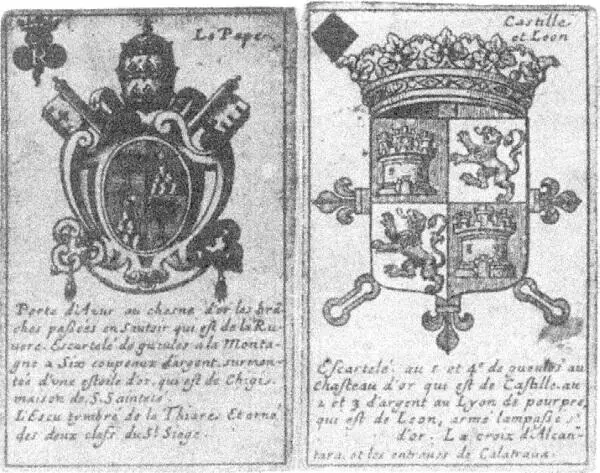 R
Le Pape
Porte d'Azur au chesne d'or les brã
ches passées en Sautoir qui est de la Ru
uere. Escartelé de gueules a la Monta
gne a Six coupeaux d'argent, surmon
tée d'une estoile d'or, qui est de Chigi
maison de S. Sainteté.
L'Escu tymbré de la Thiare. Et orné
des deux clefs du St. Siege.
Castille
et Leon
Escartelé. au 1 et 4e de gueules au
Chasteau d'or qui est de Castille. au
2 et 3 d'argent au Lyon de pourpre,
qui est de Leon, armé lampassé
d'or. La croix d'Alcan
tara, et les entraues de Calatraua.